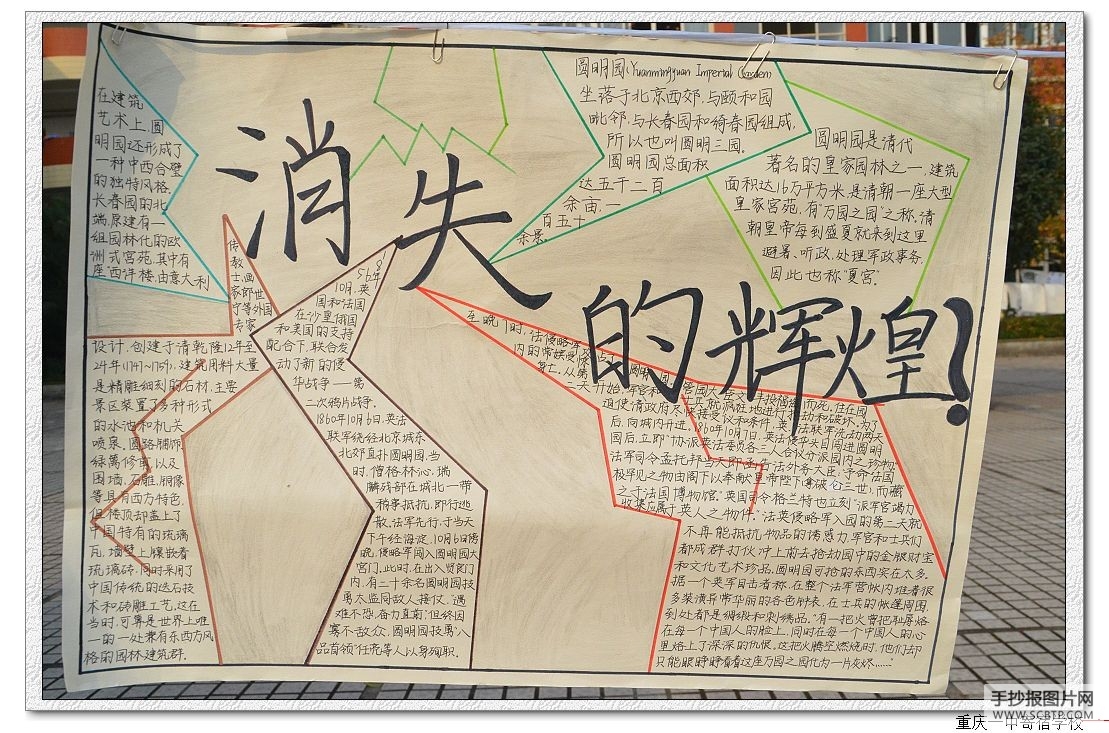 消失的辉煌!
在建筑
艺术上,圆
明园还形成了
一种中西合璧
的独特风格.
长春园的北
端,原建有一
组园林化的欧
洲式宫苑,其中有
座“西洋楼,由意大利
传
教
士,画
家郎世
宁等外国
专家
设计,创建于清乾隆12年至
24年(1747~1759),建筑用料大量
是精雕细刻的石材,主要
景区装置了多种形式
的水池和机关
喷泉,园路铺饰,
绿篱修剪,以及
围墙,石雕,铜像
等具有西方特色,
但楼顶却盖上了
中国特有的琉璃
瓦,墙壁上镶嵌着
琉璃砖,同时采用了
中国传统的迭石技
术和砖雕工艺,这在
当时,可算是世界上唯
一的一处兼有东西方风
格的园林建筑群.
56年
10月,英
国和法国
在沙皇俄国
和美国的支持
配合下,联合发
动了新的侵
华战争——第
二次鸦片战争.
1860年10月6日,英法
联军绕经北京城东
北郊直扑圆明园,当
时,僧格林沁、瑞
麟残部在城北一带
稍事抵抗,即行逃
散,法军先行,于当天
下午经海淀,10月6日傍
晚,侵略军闯入圆明园大
宫门.此时,在出入贤良门
内,有二十余名圆明园技
勇太监同敌人接仗,“遇
难不恐,奋力直前”,但终因
寡不敌众,圆明园技勇“八
品首领”任亮等人以身殉职.
圆明园(Yuanmingyuan Imperial Garden
坐落于北京西郊,与颐和园
毗邻,与长春园和绮春园组成,
所以也叫圆明三园.
圆明园总面积
达五千二百
余亩,一
百五十
余景.
圆明园是清代
著名的皇家园林之一,建筑
面积达16万平方米,是清朝一座大型
皇家宫苑,有“万园之园”之称.清
朝皇帝每到盛夏就来到这里
避暑、听政,处理军政事务,
因此也称“夏宫”.
至晚7时,法侵略军
内的常嫔受惊
而死,住在园
为了
道使清政府尽快接受议和条件,英法联军洗劫两天
后,向城内开进.1860年10月7日,英法侵华头目闯进圆明
园后,立即“协派英法委员各三人合议分派园内之珍物”.
法军司令孟托邦当天即函告法外务大臣:“予命法国
极罕见之物由阁下以奉献皇帝陛下拿破仑三世,而藏
之于法国博物馆.”英国司令格兰特也立刻“派军官竭力
收集应属于英人之物件.”法英侵略军入园的第二天就
不再能抵抗物品的诱惑力,军官和士兵们
都成群打伙冲上前去抢劫园中的金银财宝
和文化艺术珍品,圆明园可抢的东西实在太多.
据一个英军目击者称,在整个法军营帐内堆着很
多装潢异常华丽的各色钟表,在士兵的帐篷周围,
到处都是绸缎和刺绣品.“有一把火曾把耻辱烙
在每一个中国人的脸上,同时在每一个中国人的心
里烙上了深深的仇恨.这把火腾空燃烧时,他们却
只能眼睁睁看着这座万园之园化为一片灰烬……”
手抄报图片网
WWW.SCBTP.COM
重庆一中寄宿学校